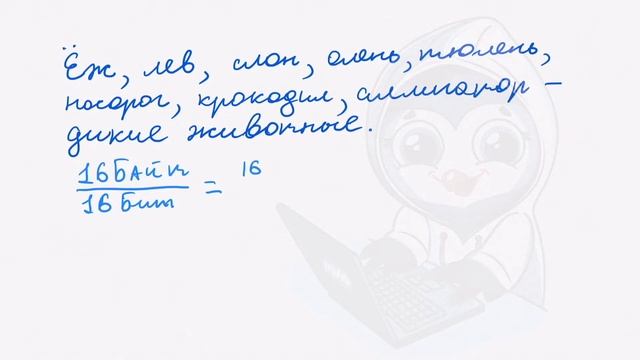 Ёж, лев, слон, олень, тюлень,
носорог, крокодил, аллигатор –
дикие животные.
16 Байт / 16 Бит = 16